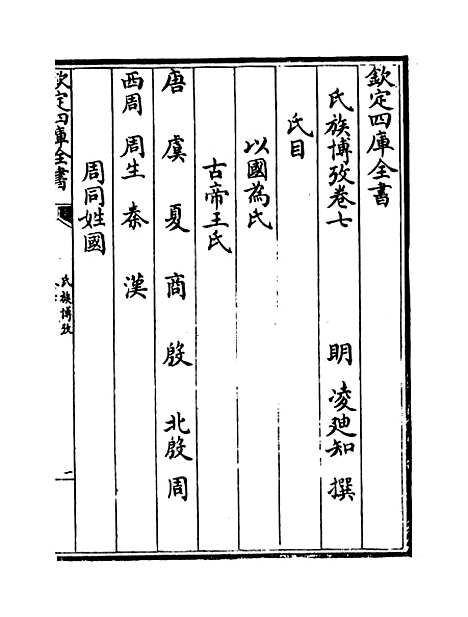 欽定四庫全書
氏族博攷卷七
明 凌迪知 撰
氏目
以國為氏
古帝王氏
唐 虞 夏 商 殷 北殷 周
西周 周生 秦 漢
周同姓國
欽定四庫全書
氏族博攷